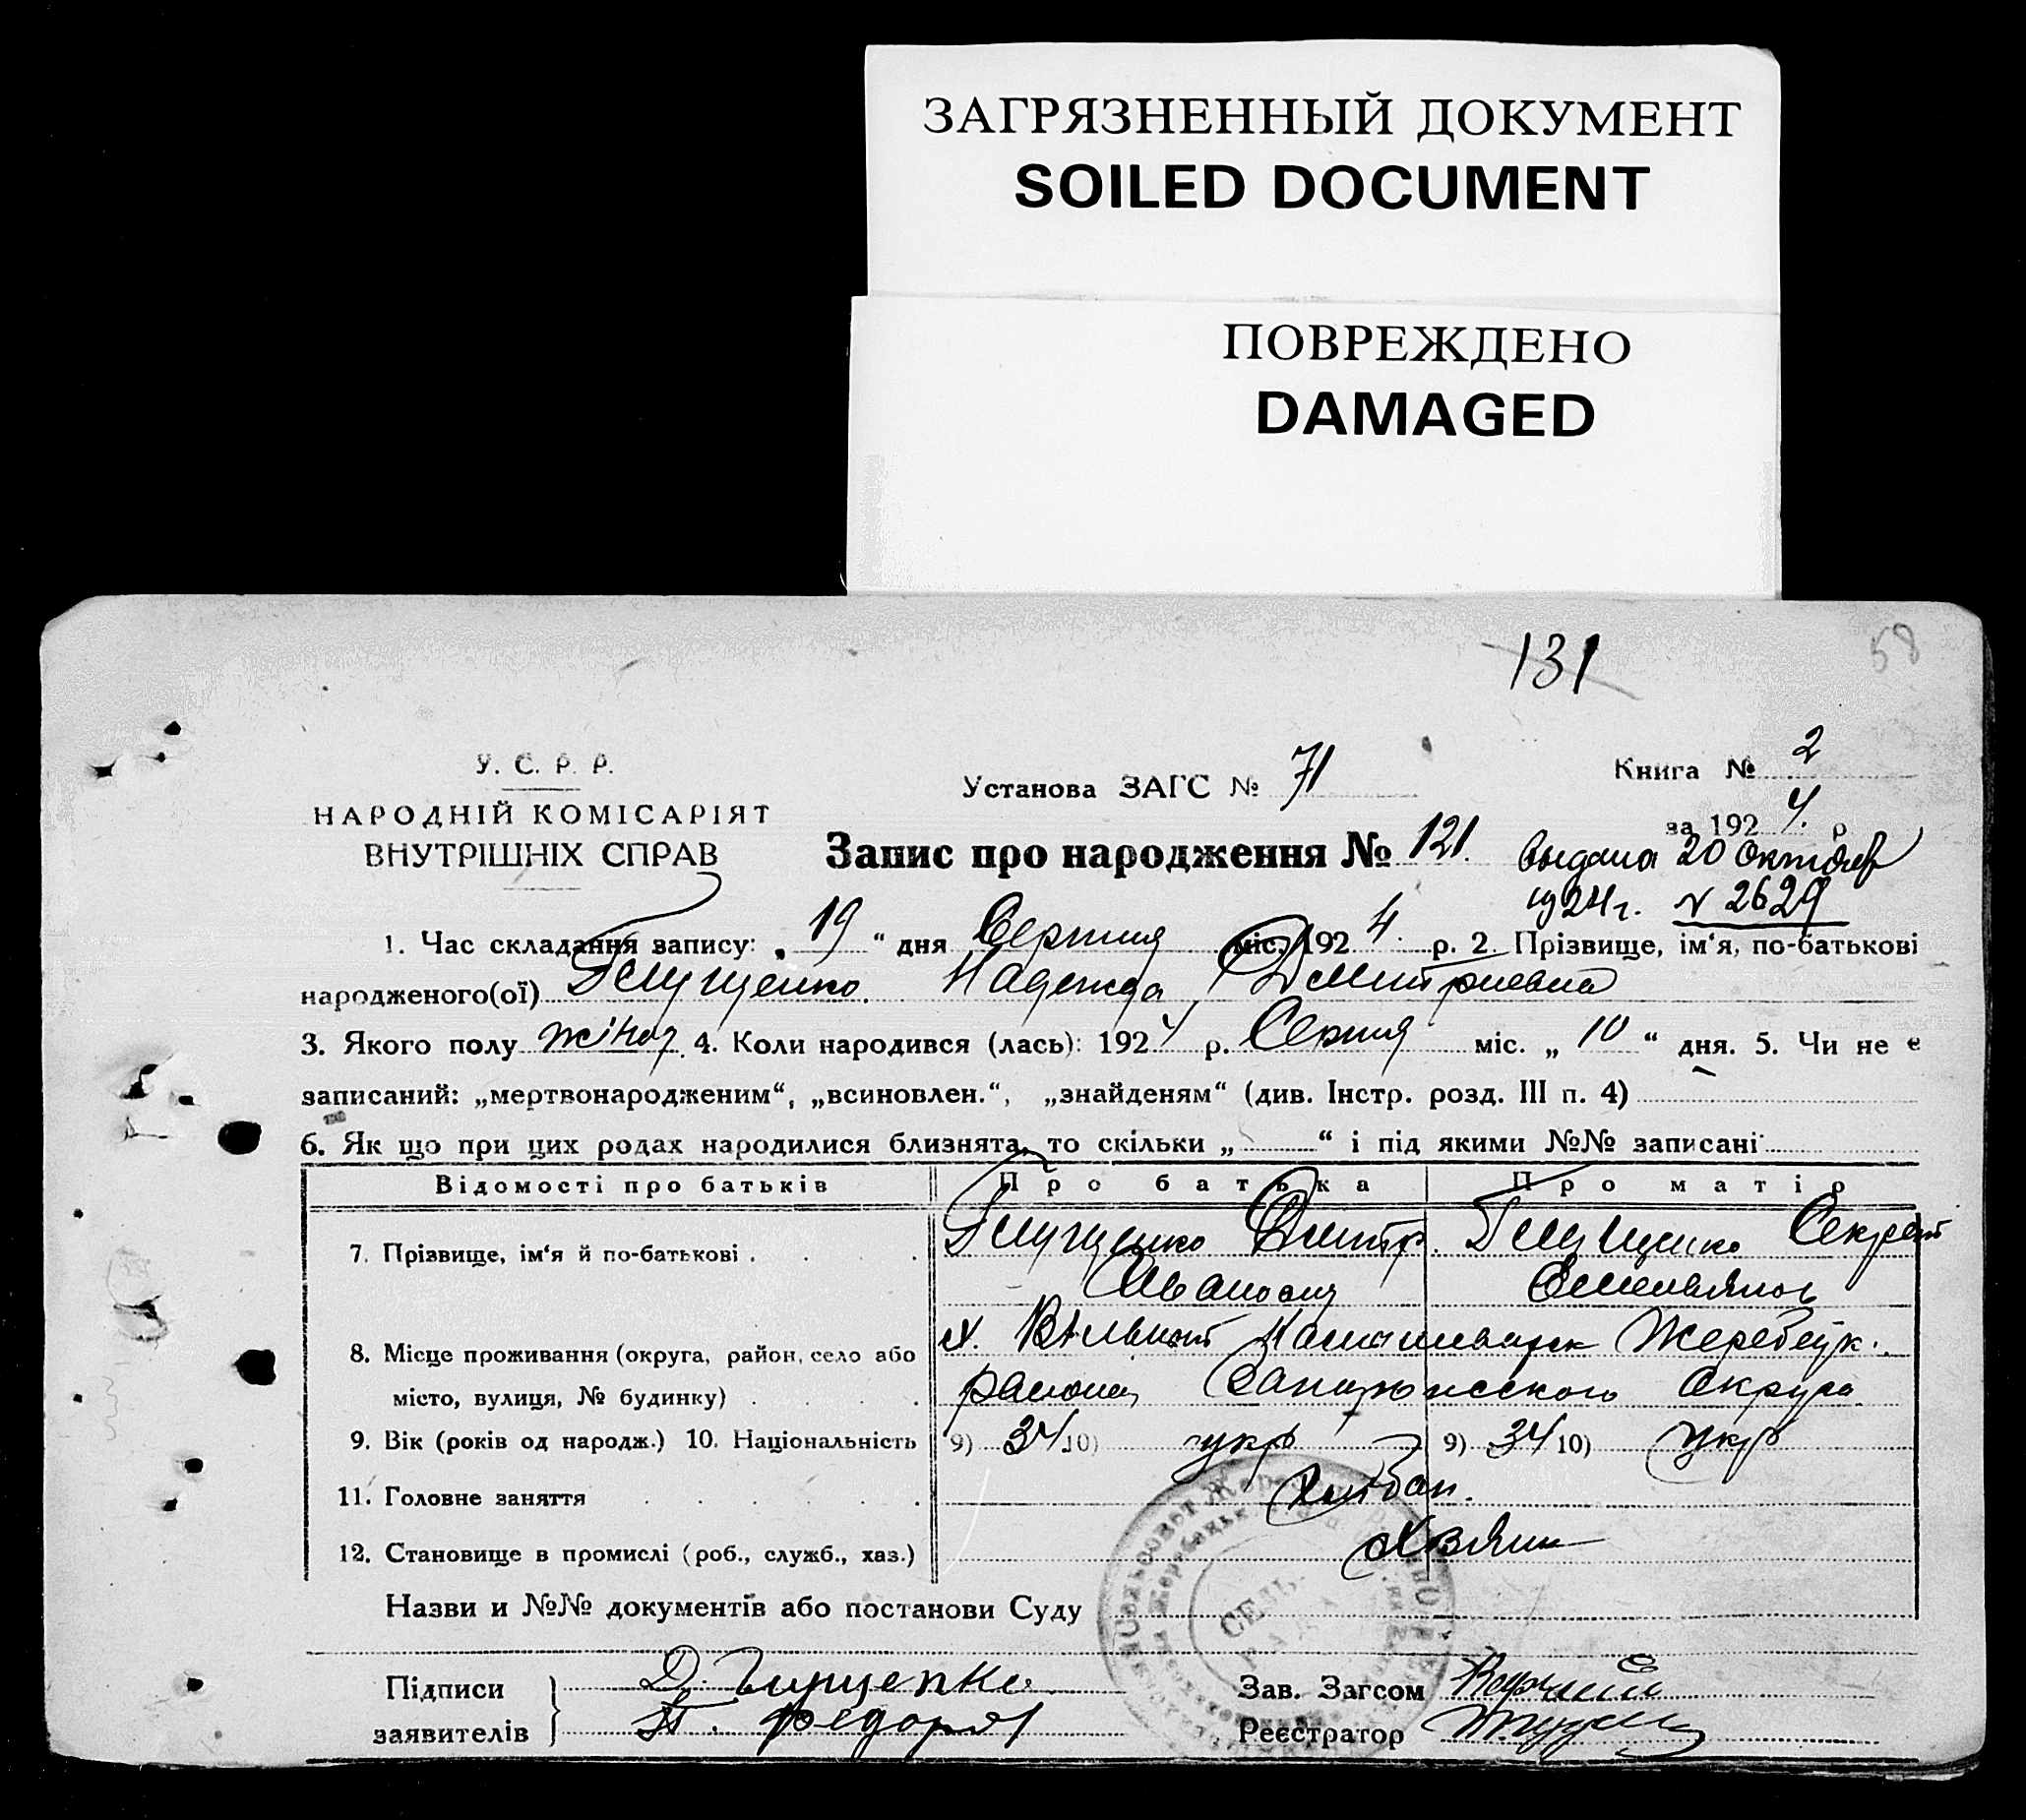 ЗАГРЯЗНЕННЫЙ ДОКУМЕНТ
SOILED DOCUMENT
ПОВРЕЖДЕНО
DAMAGED
131
58
У. С. Р. Р.
НАРОДНІЙ КОМІСАРІЯТ
ВНУТРІШНІХ СПРАВ
Установа ЗАГС № 71
Книга № 2
за 1924. р
Запис про народження № 121.
выдана 20 октябр
1924 г. N 2629
1. Час складання запису: „ 19 “ дня Серпня міс. 1924. р. 2. Прізвище, ім‘я, по-батькові
народженого(ої) Надежда Дмитриевна
3. Якого полу жіноч. 4. Коли народився (лась): 1924 р. Серпня міс. „ 10 “ дня. 5. Чи не є
записаний: „мертвонародженим“, „всиновлен.“, „знайденям“ (див. Інстр. розд. III п. 4)
6. Як що при цих родах народилися близнята, то скільки „ “ і під якими №№ записані
Відомості про батьків Про батька Про матір
7. Прізвище, ім‘я й по-батькові Дмитр.
8. Місце проживання (округа, район, село або х. Жеребецьк.
місто, вулиця, № будинку) района Округа
9. Вік (років од народж.) 10. Національність 9) 34 10) укр 9) 34 10) укр
11. Головне заняття
12. Становище в промислі (роб., служб., хаз.)
Назви и №№ документів або постанови Суду
Підписи Д. Зав. Загсом
заявителів Реєстратор